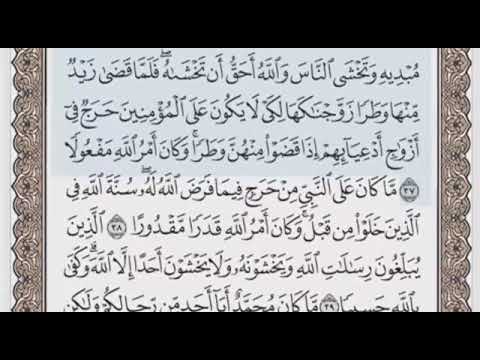 مُبْدِيهِ وَتَخْشَى ٱلنَّاسَ وَٱللَّهُ أَحَقُّ أَن تَخْشَىٰهُ ۖ فَلَمَّا قَضَىٰ زَيْدٌ
مِّنْهَا وَطَرًا زَوَّجْنَٰكَهَا لِكَىْ لَا يَكُونَ عَلَى ٱلْمُؤْمِنِينَ حَرَجٌ فِىٓ
أَزْوَٰجِ أَدْعِيَآئِهِمْ إِذَا قَضَوْا۟ مِنْهُنَّ وَطَرًا ۚ وَكَانَ أَمْرُ ٱللَّهِ مَفْعُولًا
٣٧ مَّا كَانَ عَلَى ٱلنَّبِىِّ مِنْ حَرَجٍ فِيمَا فَرَضَ ٱللَّهُ لَهُۥ ۖ سُنَّةَ ٱللَّهِ فِى
ٱلَّذِينَ خَلَوْا۟ مِن قَبْلُ ۚ وَكَانَ أَمْرُ ٱللَّهِ قَدَرًا مَّقْدُورًا ٣٨ ٱلَّذِينَ
يُبَلِّغُونَ رِسَٰلَٰتِ ٱللَّهِ وَيَخْشَوْنَهُۥ وَلَا يَخْشَوْنَ أَحَدًا إِلَّا ٱللَّهَ ۗ وَكَفَىٰ
بِٱللَّهِ حَسِيبًا ٣٩ مَّا كَانَ مُحَمَّدٌ أَبَآ أَحَدٍ مِّن رِّجَالِكُمْ وَلَٰكِن